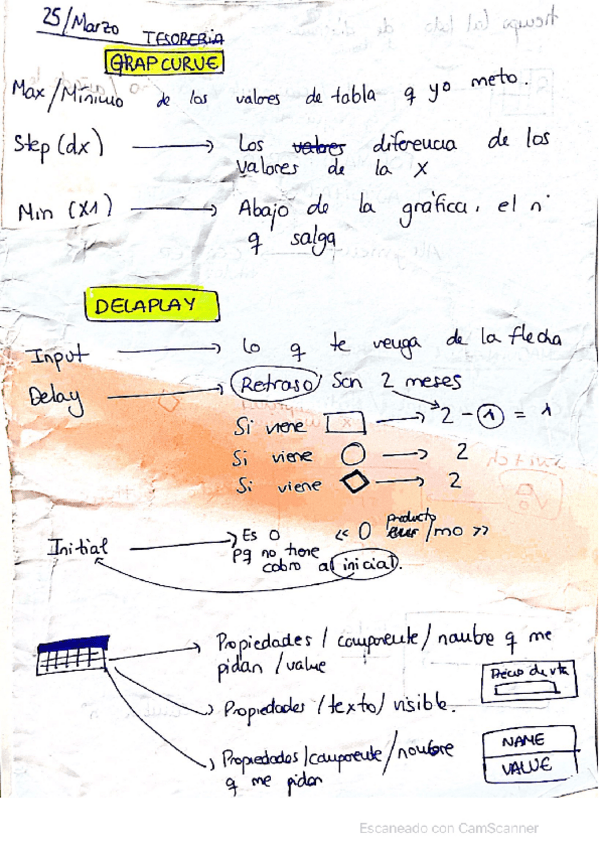 25/Marzo TESORERIA
GRAPCURVE
Max/Mínimo de los valores de tabla q yo meto.
Step (dx) → Los valores diferencia de los
valores de la X
Min (X1) → Abajo de la gráfica, el nº
q salga
DELAPLAY
Input → lo q te venga de la flecha
Delay → Retraso/ Son 2 meses
Si viene → 2 - 1 = 1
Si viene → 2
Si viene → 2
Initial → Es 0 « 0 producto /mo »
pq no tiene
cobro al inicial.
Propiedades / componente / nombre q me
pidan / value
Precio de vta
Propiedades / texto / visible.
Propiedades / componente / nombre
q me pidan
NAME
VALUE
Escaneado con CamScanner